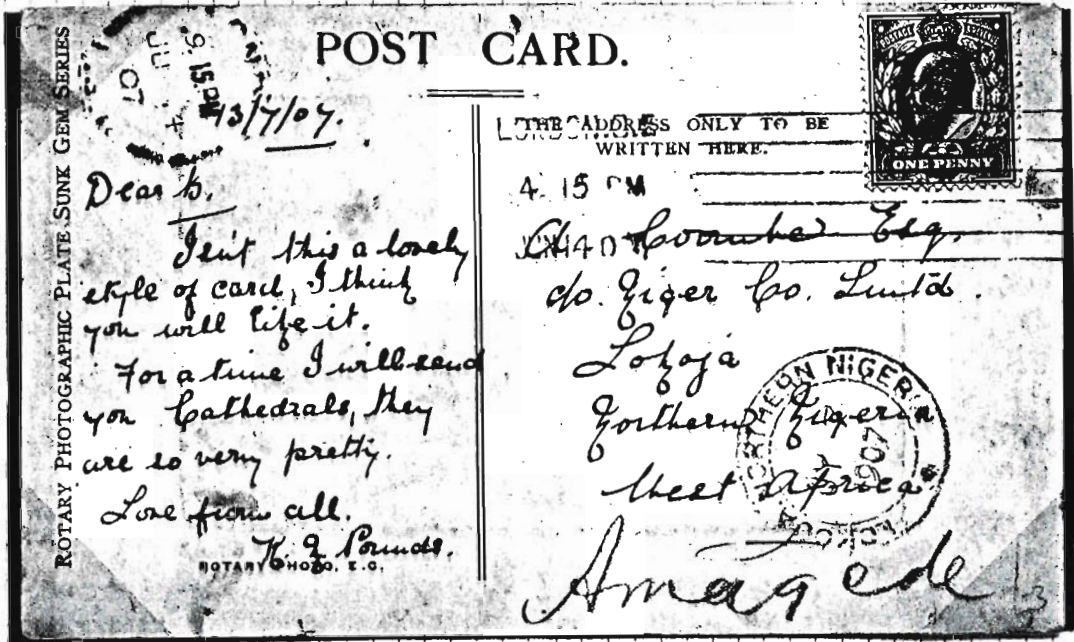 ROTARY PHOTOGRAPHIC PLATE SUNK GEM SERIES
POST CARD.
9.15PM
JU
07
13/7/07.
Dear
Isn't this a lovely
style of card, I think
you will like it.
For a time I will send
you Cathedrals, they
are so very pretty.
Love from all.
Pounds.
ROTARY PHOTO, E.C.
THE ADDRESS ONLY TO BE
WRITTEN HERE.
4. 15 PM
POSTAGE
ONE PENNY
Coomber Esq.
c/o. Niger Co. Limtd.
Lokoja
Northern Nigeria
West Africa
NORTHERN NIGERIA
LOKOJA
907
Amagede